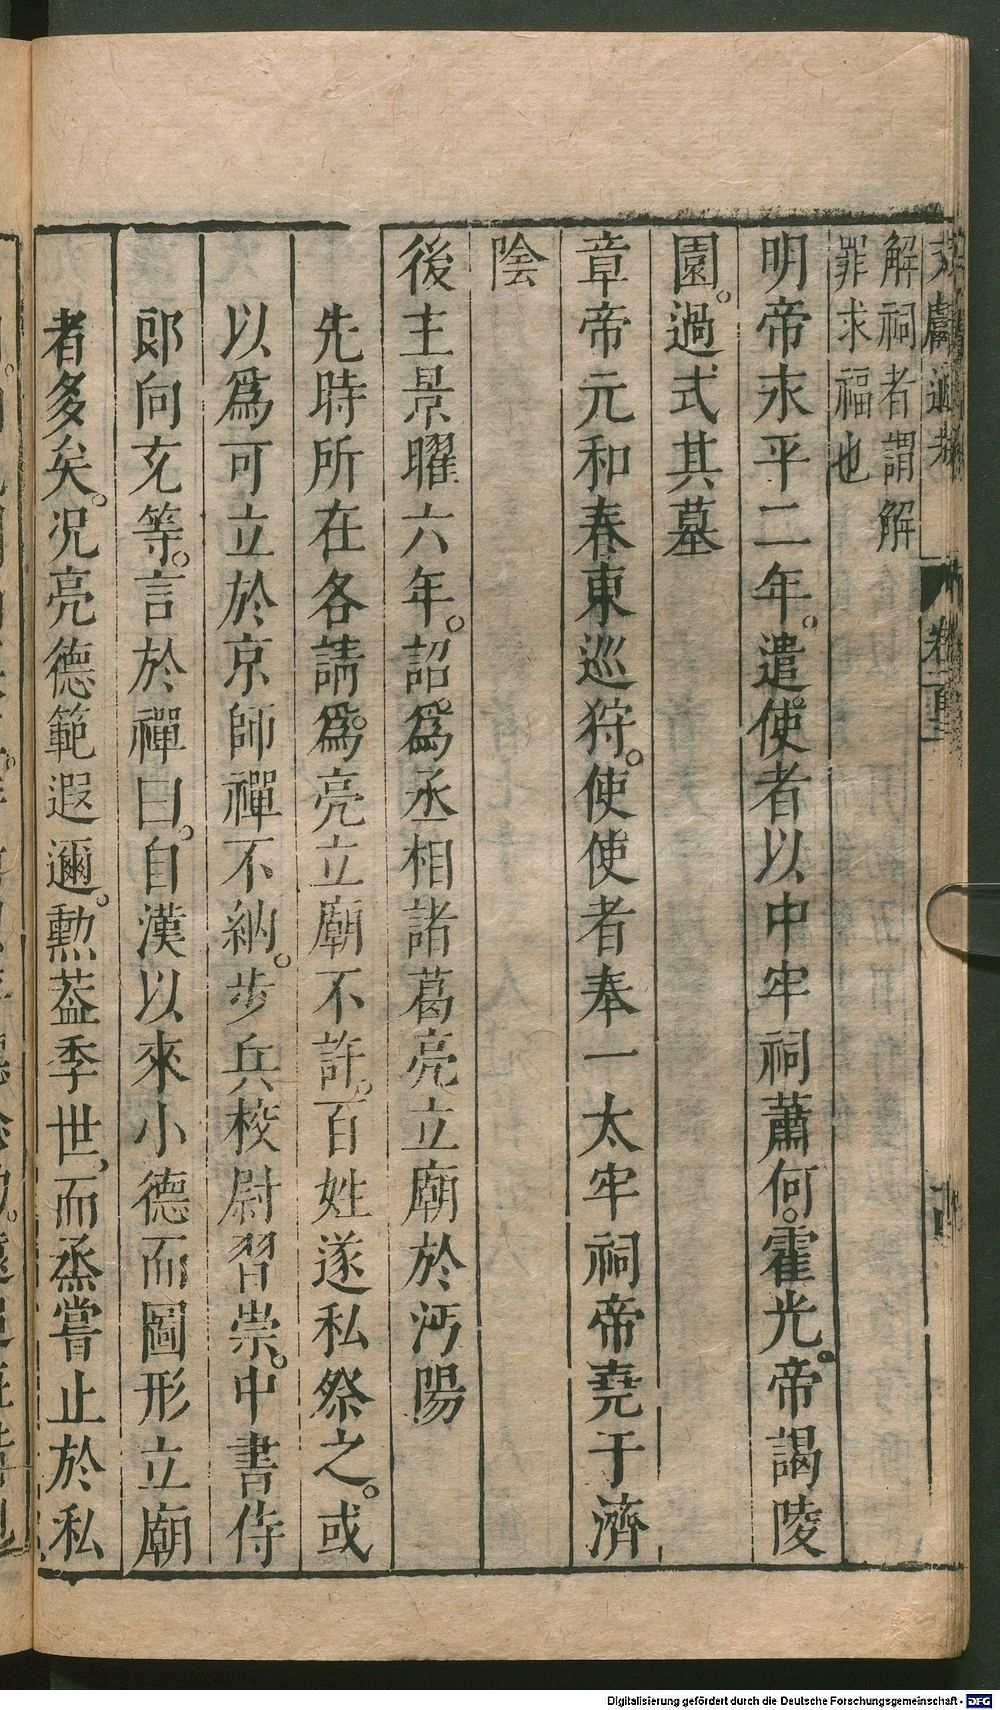 文獻通考 卷一百三
解祠者謂解
罪求福也
明帝永平二年遣使者以中牢祠蕭何霍光帝謁陵
園過式其墓
章帝元和春東巡狩使使者奉一太牢祠帝堯于濟
陰
後主景曜六年詔爲丞相諸葛亮立廟於沔陽
先時所在各請爲亮立廟不許百姓遂私祭之或
以爲可立於京師禪不納步兵校尉習崇中書侍
郎向充等言於禪曰自漢以來小德而圖形立廟
者多矣況亮德範遐邇勲葢季世而烝嘗止於私
Digitalisierung gefördert durch die Deutsche Forschungsgemeinschaft - DFG